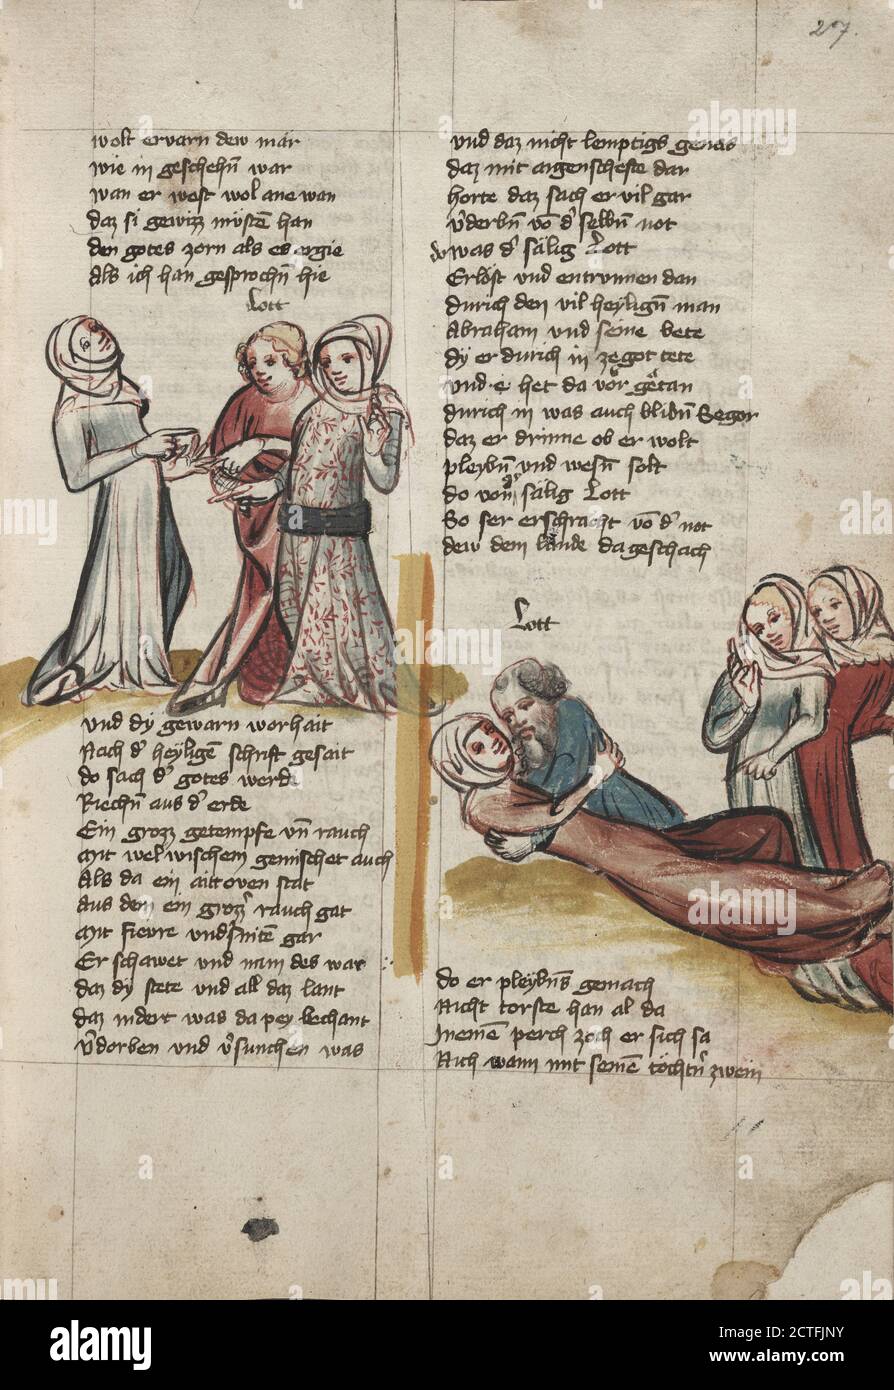 27.
wolt ervarn dew mär
wie in geschehn̄ war
wan er west wol ane wan
daz si gewizz müstē han
den gotes zorn als es ergie
Als ich han gesprochn̄ hie
Lott
und dy gewarn worhait
Nach d' heyligē schrift gesait
do sach d' gotes werde
Riechn̄ aus d' erde
Ein grozz getempfe vn̄ rauch
mit welwischem gemischet auch
Als da ein aittoven stat
Aus dem ein grozz' rauch gat
mit fiewre gar
Er schawet und nam des war
daz dy stete und all daz lant
daz indert was da pey bechant
v'dorben und v'sunchen was
und daz nicht lemptigs genas
daz mit aigenscheffte dar
horte daz sach er vil gar
v'derbn̄ vō d' selbn̄ not
do was d' sälig Lott
Erlöst und entrunnen dan
durich den vil heylign̄ man
Abraham und seine bete
dy er durich in ze got tete
und e het da vor getan
durich in was auch blibn̄ Segor
daz er drinne ob er wolt
pleybn̄ und wesn̄ solt
do von sälig Lott
So ser erschracht vō d' not
dew dem lande da geschach
Lott
do er pleybn̄s gemach
Nicht torste han al da
Inemē perch zoch er sich sa
Nich wann mit seinē töchtn̄ zwein
alamy
Image ID: 2CTFJNY
www.alamy.com